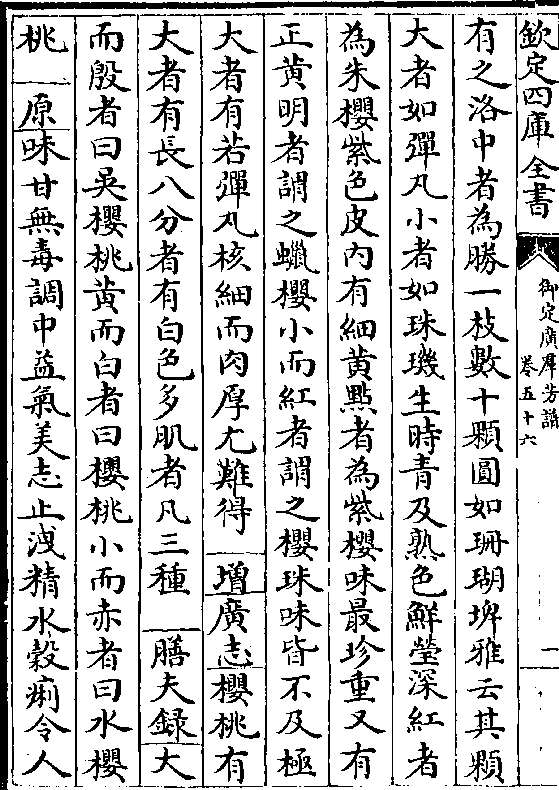 欽定四庫全書
御定廣羣芳譜
卷五十六
一
有之洛中者為勝一枝數十顆圓如珊瑚埤雅云其顆
大者如彈丸小者如珠璣生時青及熟色鮮瑩深紅者
為朱櫻紫色皮内有細黄㸃者為紫櫻味最珍重又有
正黄明者謂之蠟櫻小而紅者謂之櫻珠味皆不及極
大者有若彈丸核細而肉厚尤難得 增廣志櫻桃有
大者有長八分者有白色多肌者凡三種 膳夫録大
而殷者曰吳櫻桃黄而白者曰櫻桃小而赤者曰水櫻
桃 原味甘無毒調中益氣美志止洩精水穀痢令人